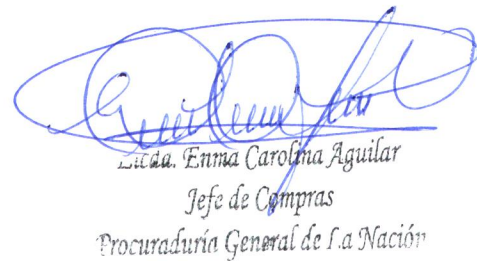 Licda. Enma Carolina Aguilar
Jefe de Compras
Procuraduría General de La Nación